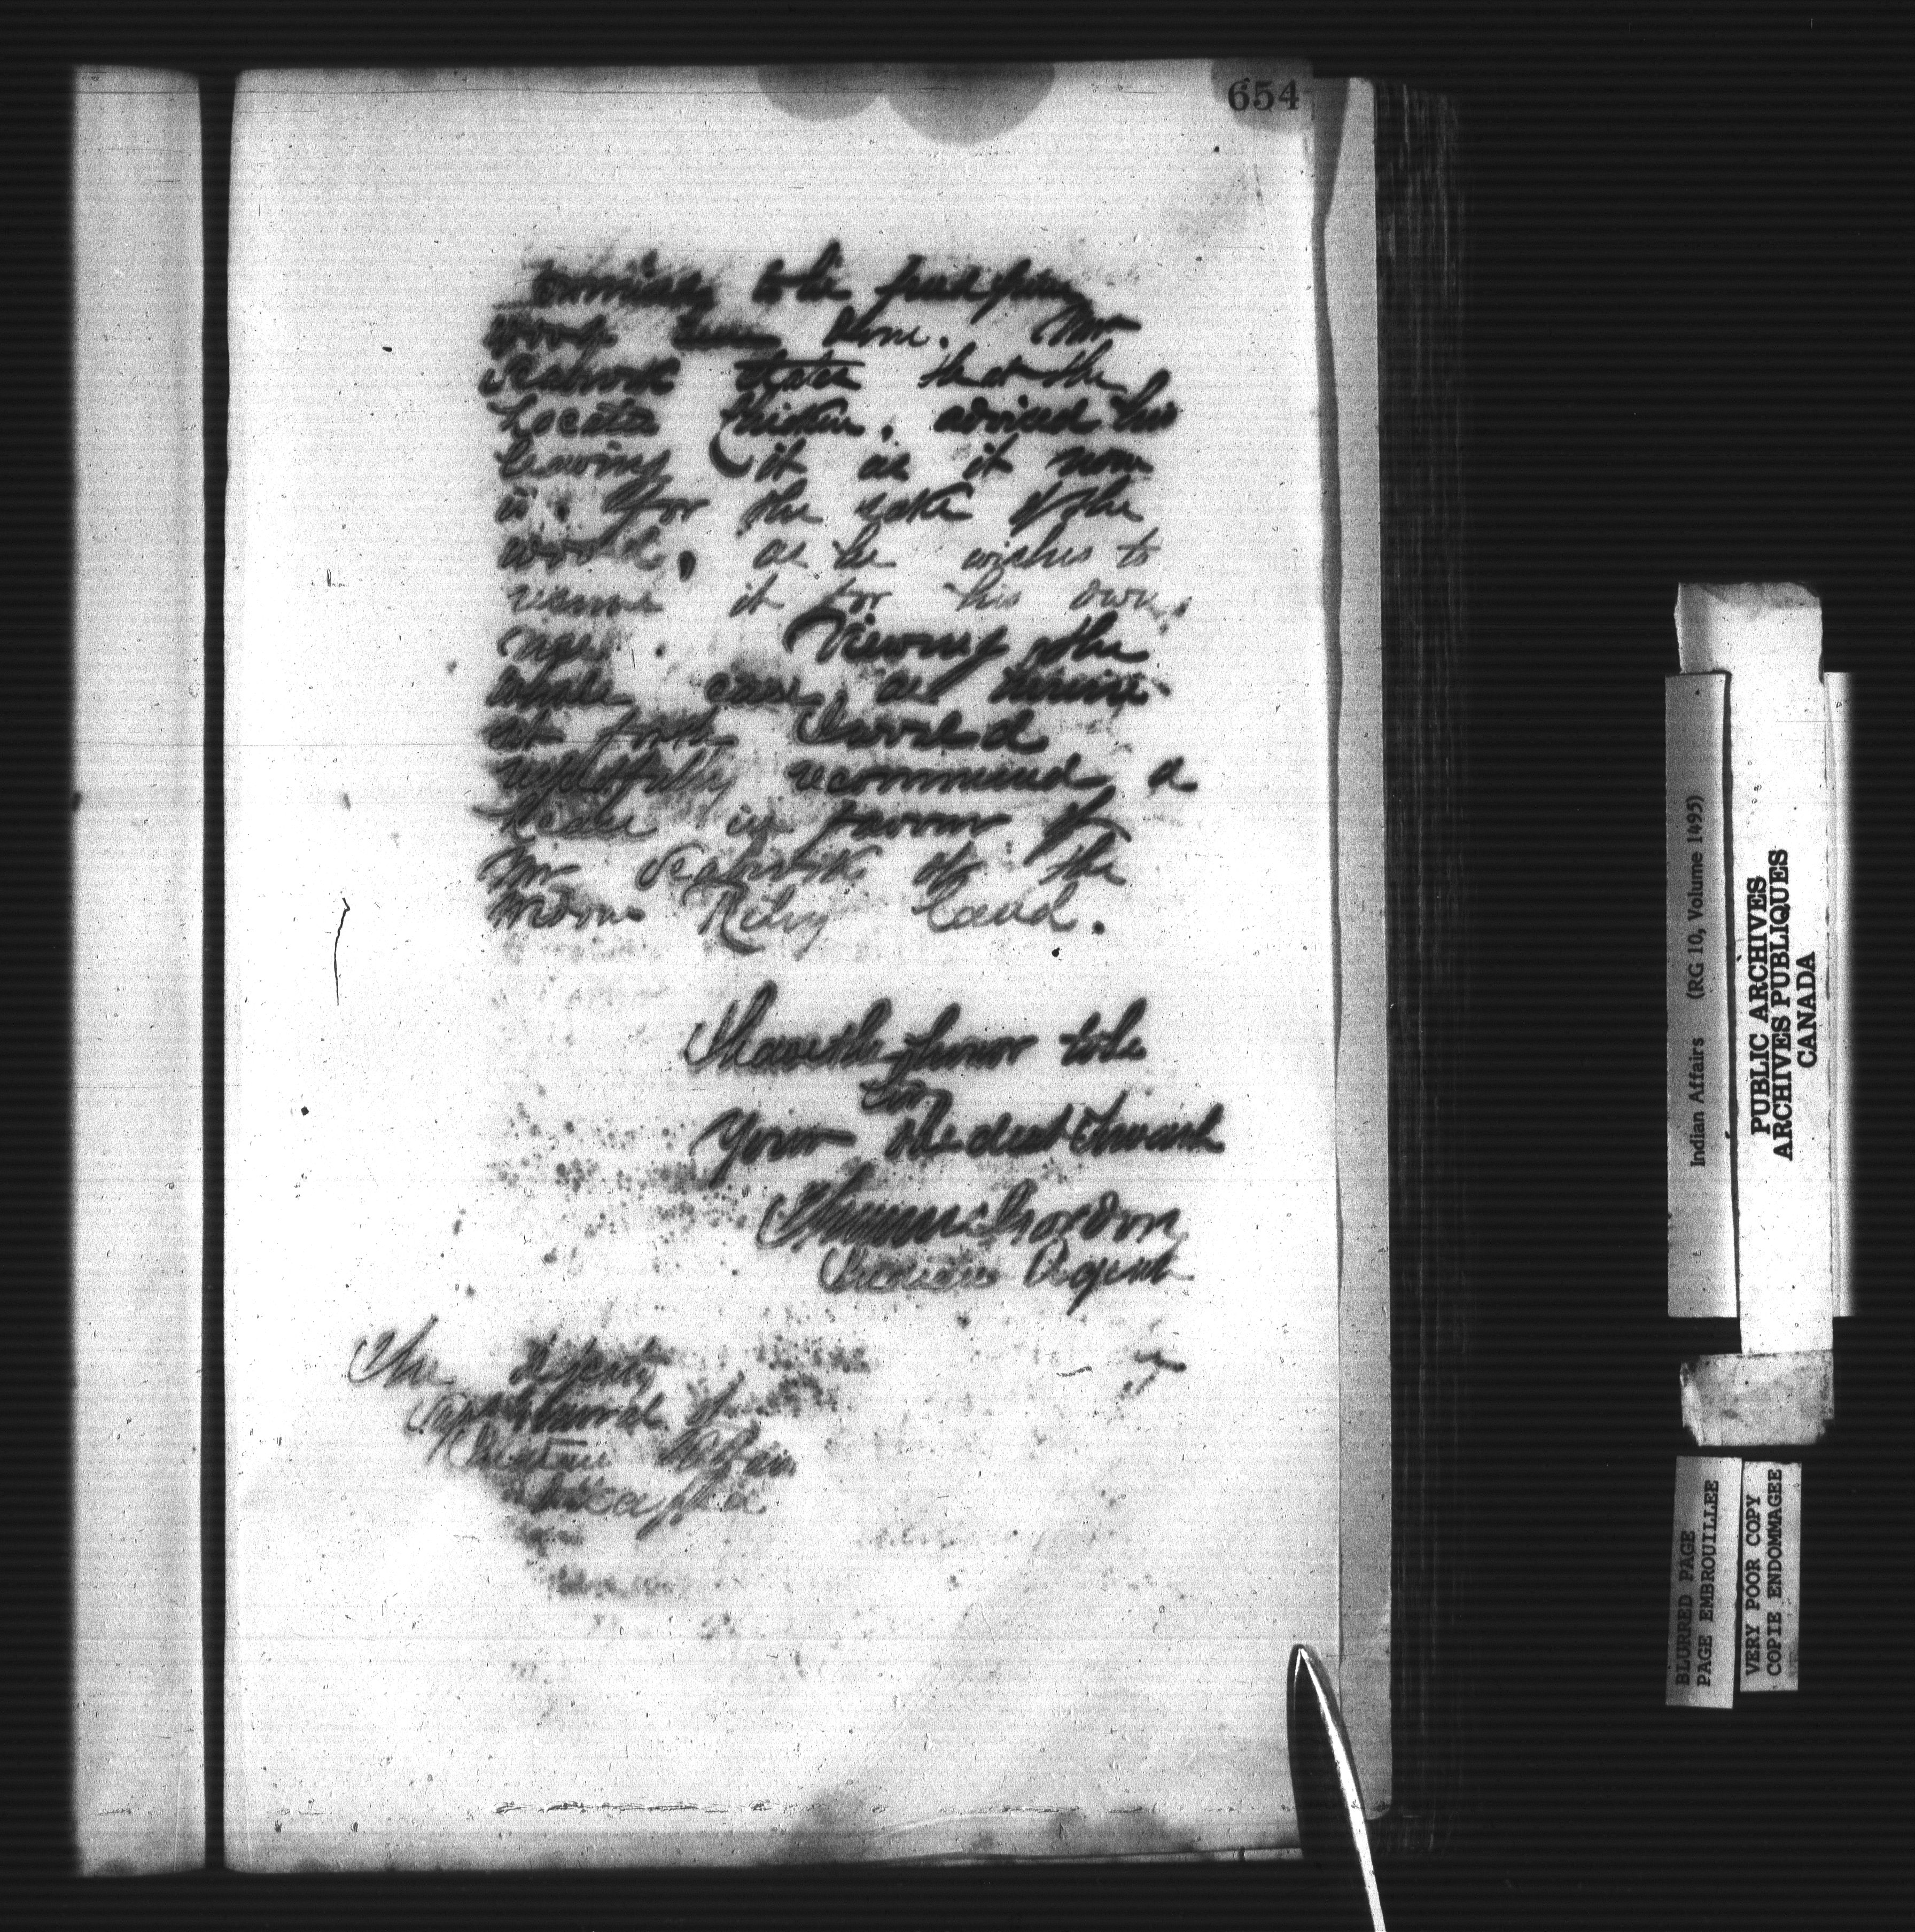 654
to be
wood
done. Mr
Seabrook states that the
Locatee advised his
leaving it as it now
is for the sake of the
wood, as he wishes to
it for his own
use. Viewing the
whole case as herein
set forth I would
respectfully recommend a
lease in favour of
Mr Seabrook of the
Moore Riley land.
I have the honor to be
Sir
Your Obedient Servant
Thomas Gordon
Indian Agent
The Deputy
Supt General of
Indian Affairs
Ottawa
Indian Affairs (RG 10, Volume 1495)
PUBLIC ARCHIVES
ARCHIVES PUBLIQUES
CANADA
BLURRED PAGE
PAGE EMBROUILLEE
VERY POOR COPY
COPIE ENDOMMAGEE